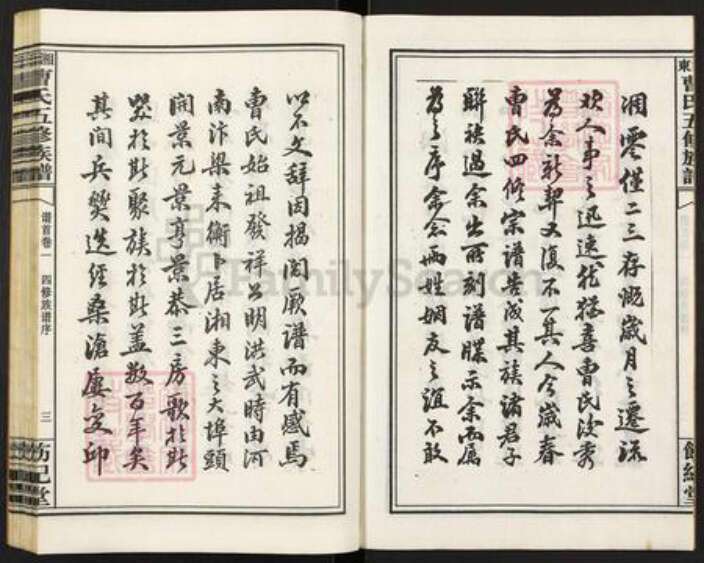 東曹氏五修族譜
凋零僅二三存慨歲月之遷流
欣人事之迅速猶喜曹氏後秀
為余新契又復不一其人今歲春
曹氏四修宗譜告成其族諸君子
聯袂過余出所刻譜牒示余而屬
為之序余念兩姓姻友之誼不敢
以不文辭因揭閱厥譜而有感焉
曹氏始祖發祥公明洪武時由河
南汴梁來衡卜居湘東之大埠頭
開景元景亨景恭三房歌於斯
哭於斯聚族於斯蓋數百年矣
其間兵燹迭經桑滄屢變卽
湘
曹氏五修族譜
谱首卷一
四修族谱序
三
FamilySearch